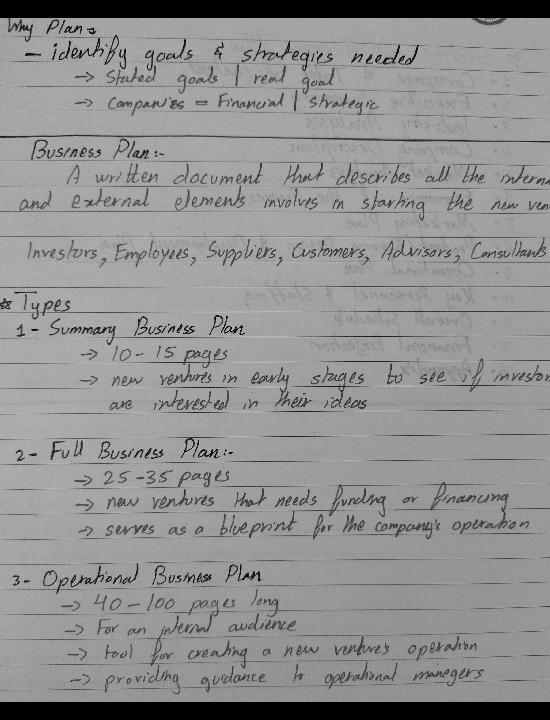 Why Plan :-
- identify goals & strategies needed
→ Stated goals | real goal
→ Companies = Financial | strategic
Business Plan:-
A written document that describes all the interna
and external elements involves in starting the new ven
Investors, Employees, Suppliers, Customers, Advisors, Consultants
* Types
1- Summary Business Plan
→ 10-15 pages
→ new ventures in early stages to see if investor
are interested in their ideas
2- Full Business Plan:-
→ 25-35 pages
→ new ventures that needs funding or financing
→ serves as a blueprint for the company's operation
3- Operational Business Plan
→ 40-100 pages long
→ For an internal audience
→ tool for creating a new venture's operation
→ providing guidance to operational manegers